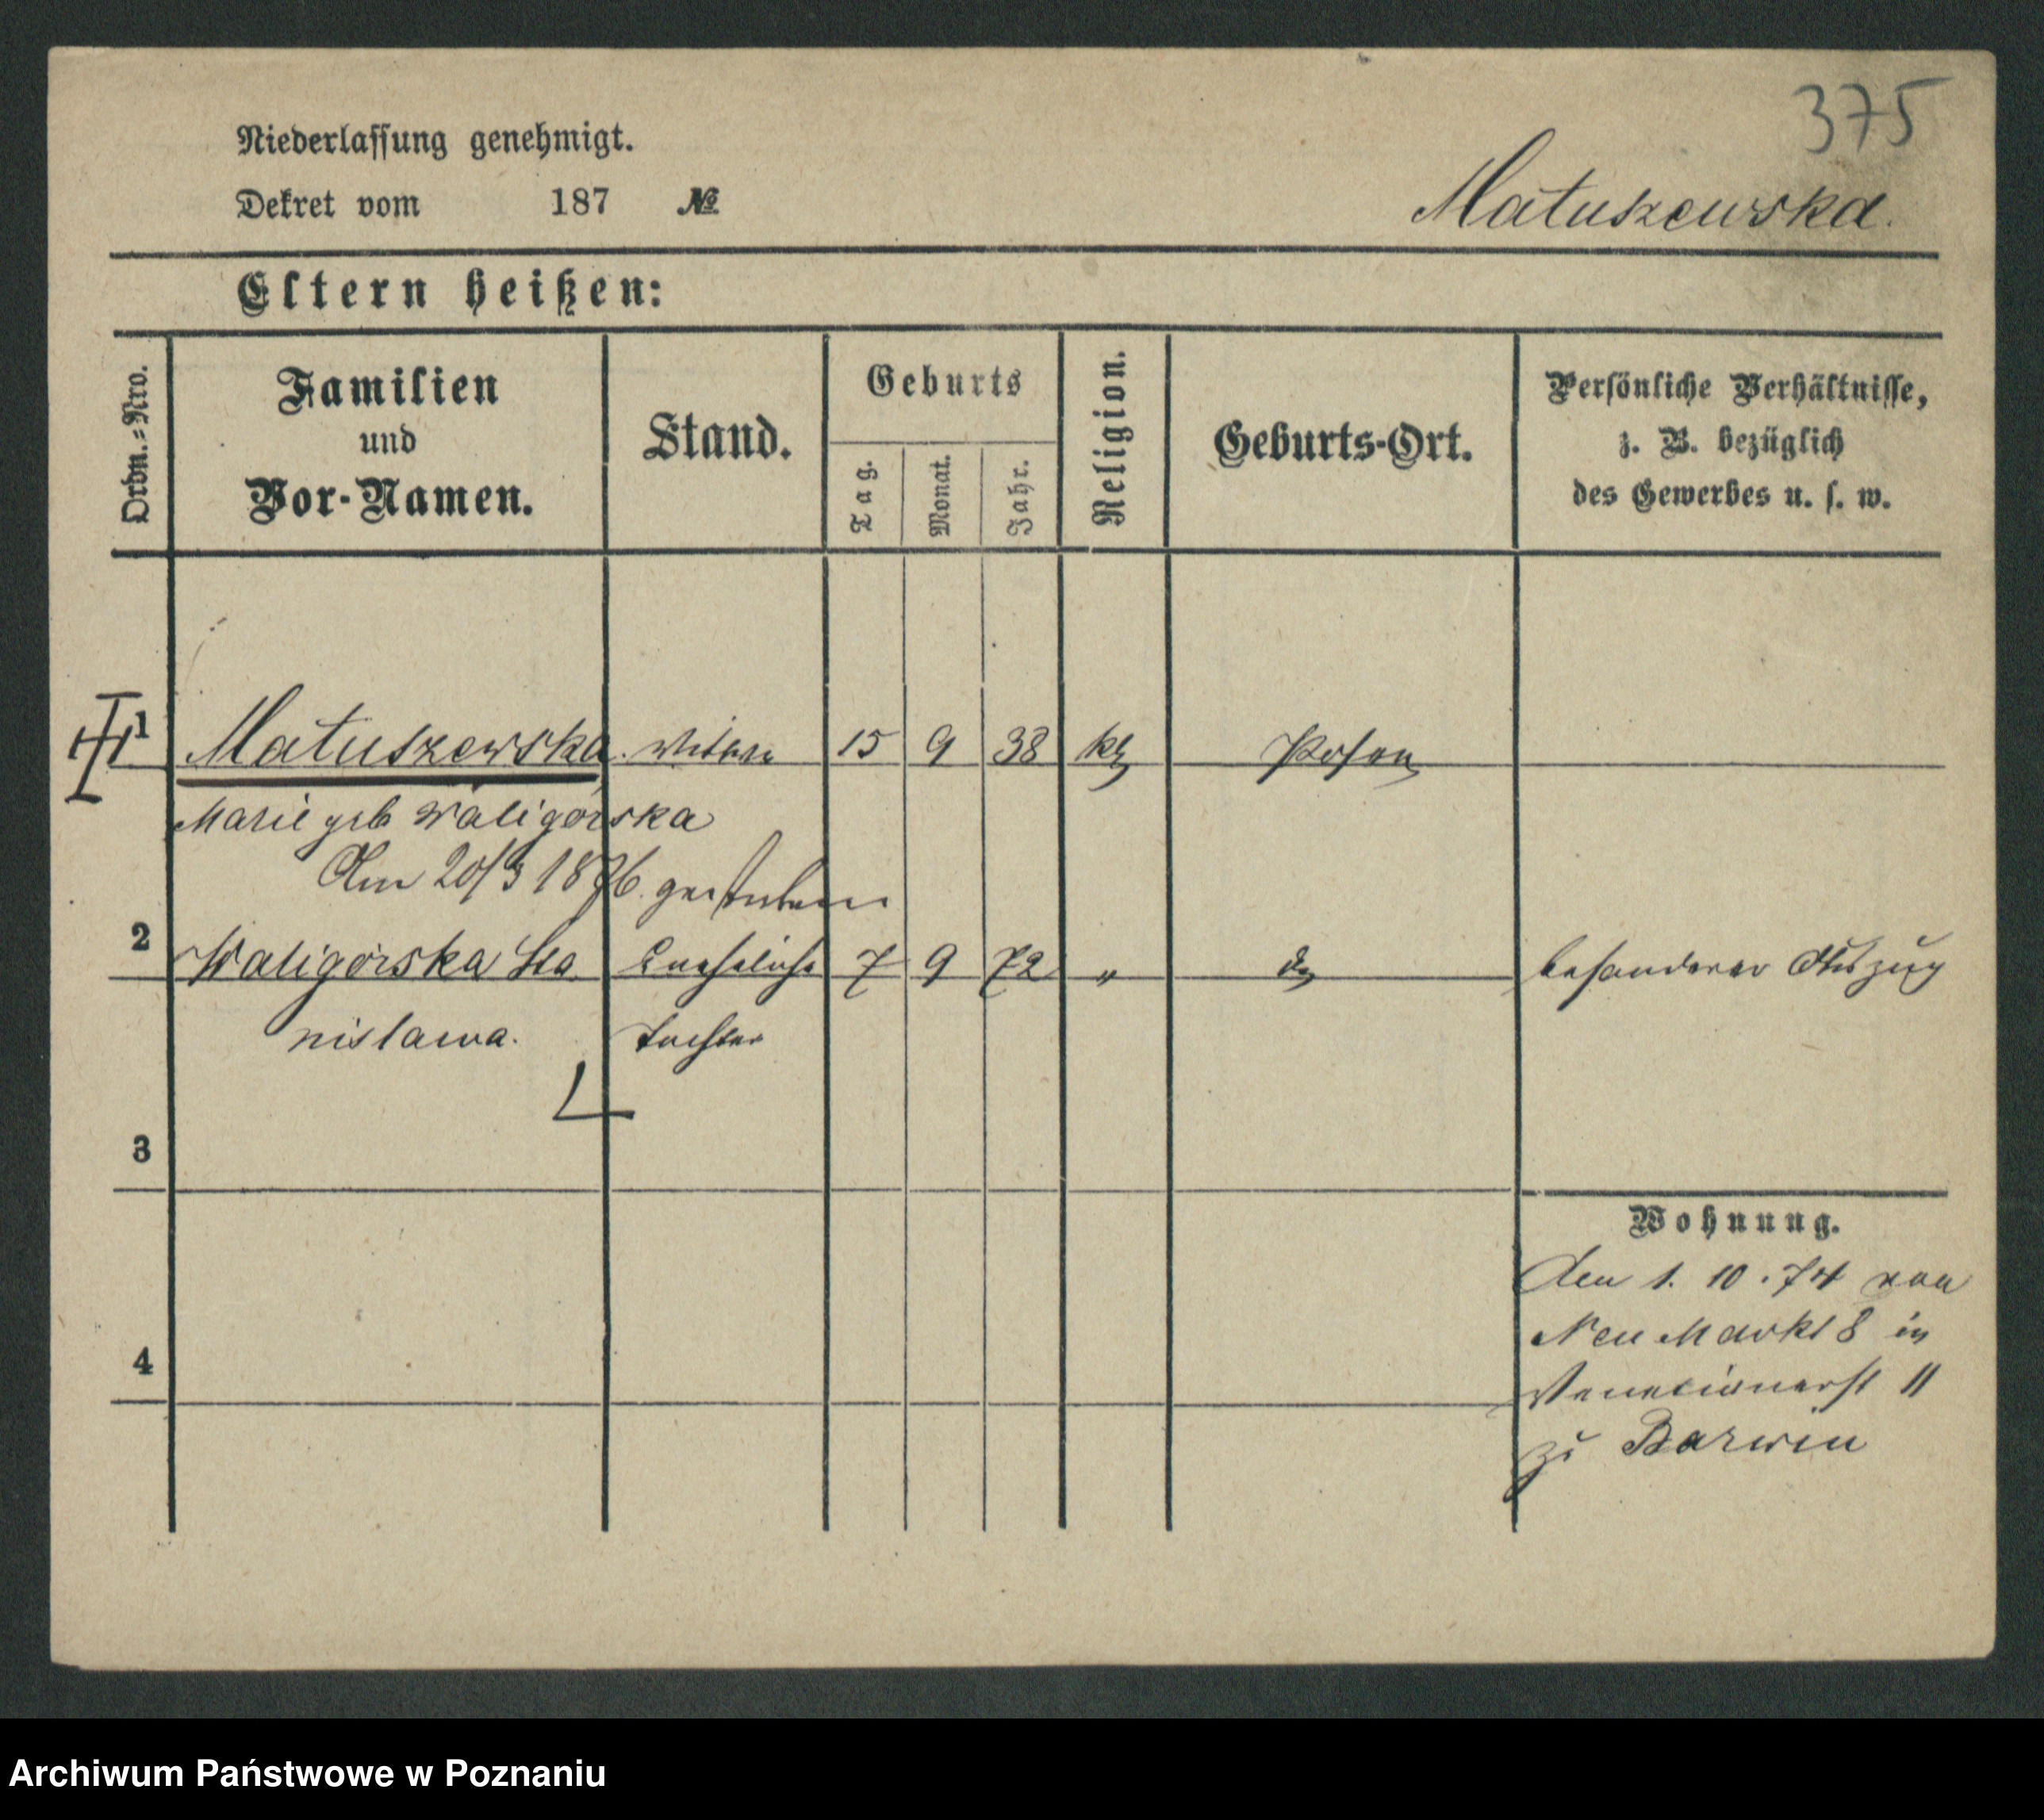 375
Niederlassung genehmigt.
Dekret vom 187 №
Matuszewska.
Eltern heißen:
Ordn.=Nro.
Familien
und
Vor-Namen.
Stand.
Geburts
Tag.
Monat.
Jahr.
Religion.
Geburts-Ort.
Persönliche Verhältnisse,
z. B. bezüglich
des Gewerbes u. s. w.
1 Matuszewska. Witwe 15 9 38 kth Posen
Marie geb Waligorska
Am 20/3 1876. gestorben
2 Waligórska Sta Uneheliche 7 9 72 " do besonderer Auszug
nislawa. Tochter
3
4
Wohnung.
Den 1. 10. 74 von
Neu Markt 8 in
Venetianerst 11
zu Barwin
Archiwum Państwowe w Poznaniu